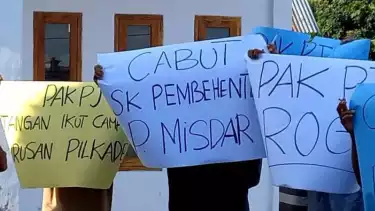 PAK PJ
TANGAN IKUT CAM
RUSAN PILKADE
CABUT
SK PEMBEHENTI
P. MISDAR
PAK PJ
ROG